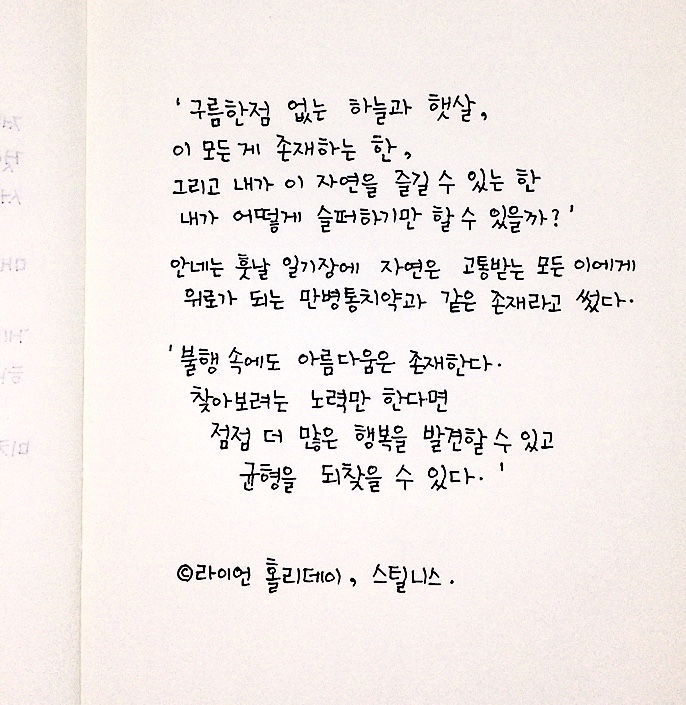 '구름한점 없는 하늘과 햇살,
이 모든 게 존재하는 한,
그리고 내가 이 자연을 즐길 수 있는 한
내가 어떻게 슬퍼하기만 할 수 있을까?'
안네는 훗날 일기장에 자연은 고통받는 모든 이에게
위로가 되는 만병통치약과 같은 존재라고 썼다.
'불행 속에도 아름다움은 존재한다.
찾아보려는 노력만 한다면
점점 더 많은 행복을 발견할 수 있고
균형을 되찾을 수 있다.'
©라이언 홀리데이, 스틸니스.